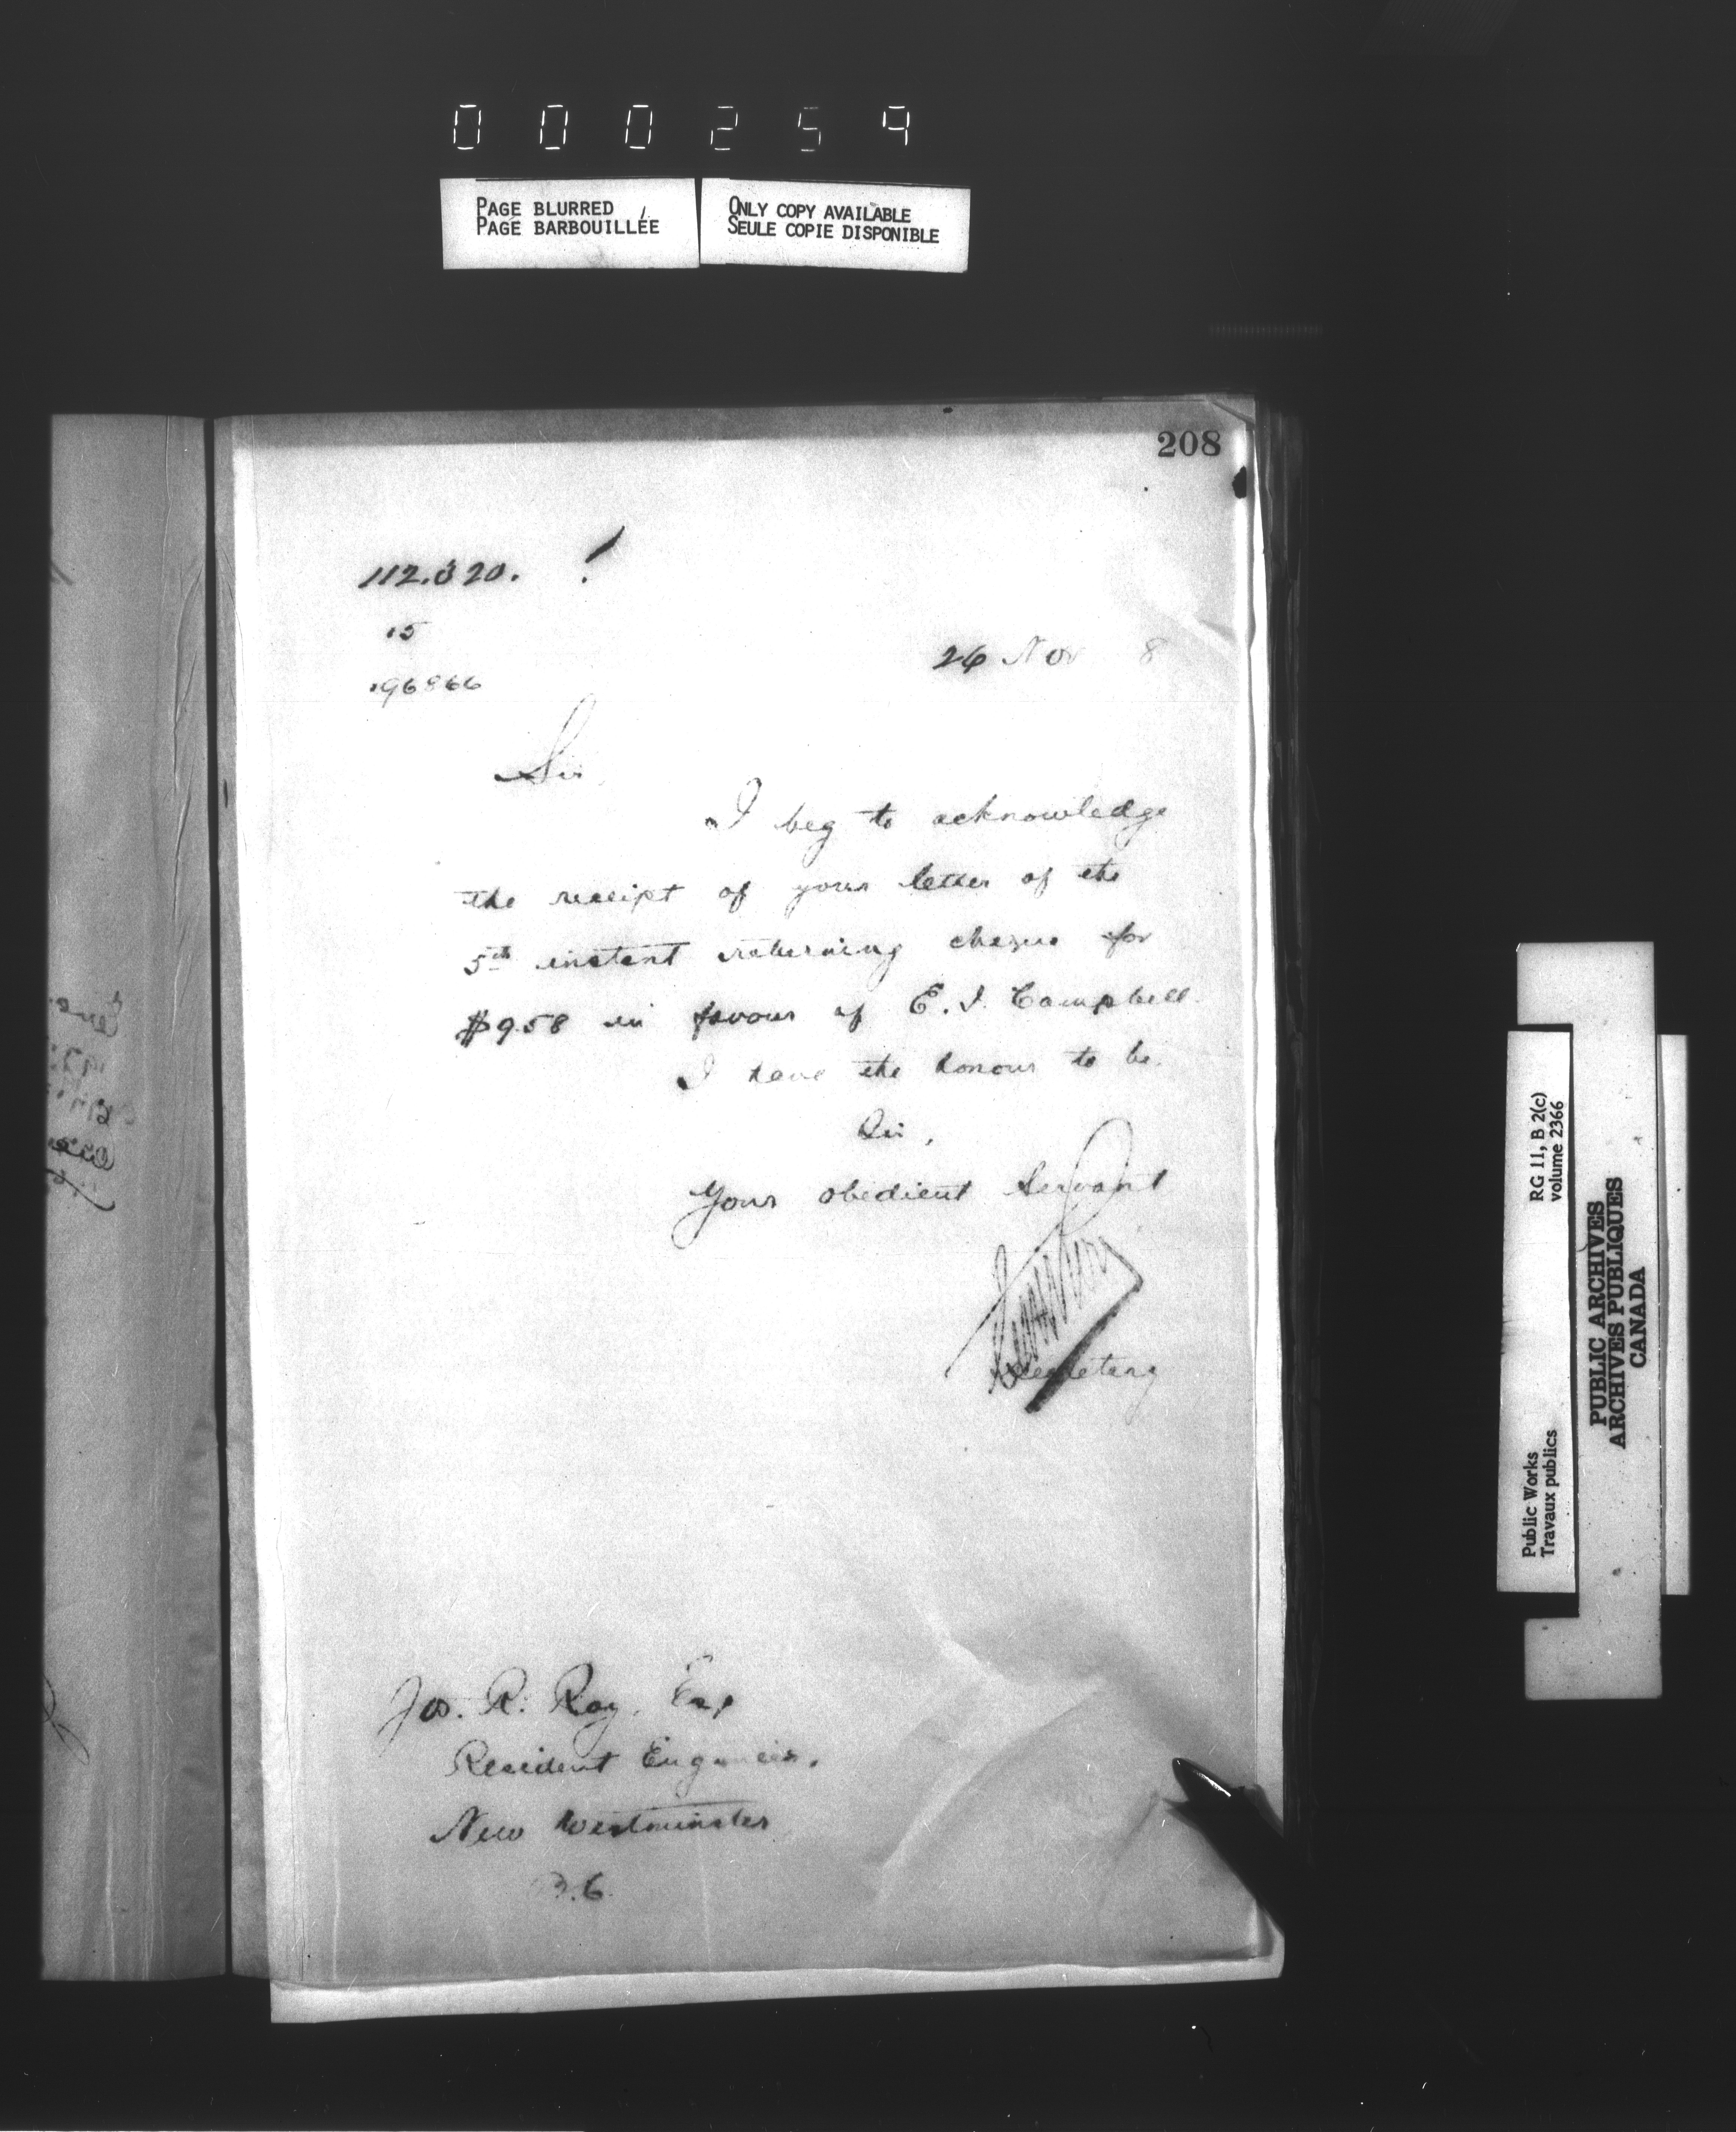 000259
PAGE BLURRED
PAGE BARBOUILLÉE
ONLY COPY AVAILABLE
SEULE COPIE DISPONIBLE
208
15
196866
26 Nov 8
Sir,
I beg to acknowledge
the receipt of your letter of the
5th instant returning cheque for
$9.58 in favour of E. J. Campbell.
I have the honour to be.
Sir,
Your obedient Servant
Secretary
Jos. R. Roy, Esq
Resident Engineer.
New Westminster
B.C.
RG 11, B 2(c)
volume 2366
Public Works
Travaux publics
PUBLIC ARCHIVES
ARCHIVES PUBLIQUES
CANADA